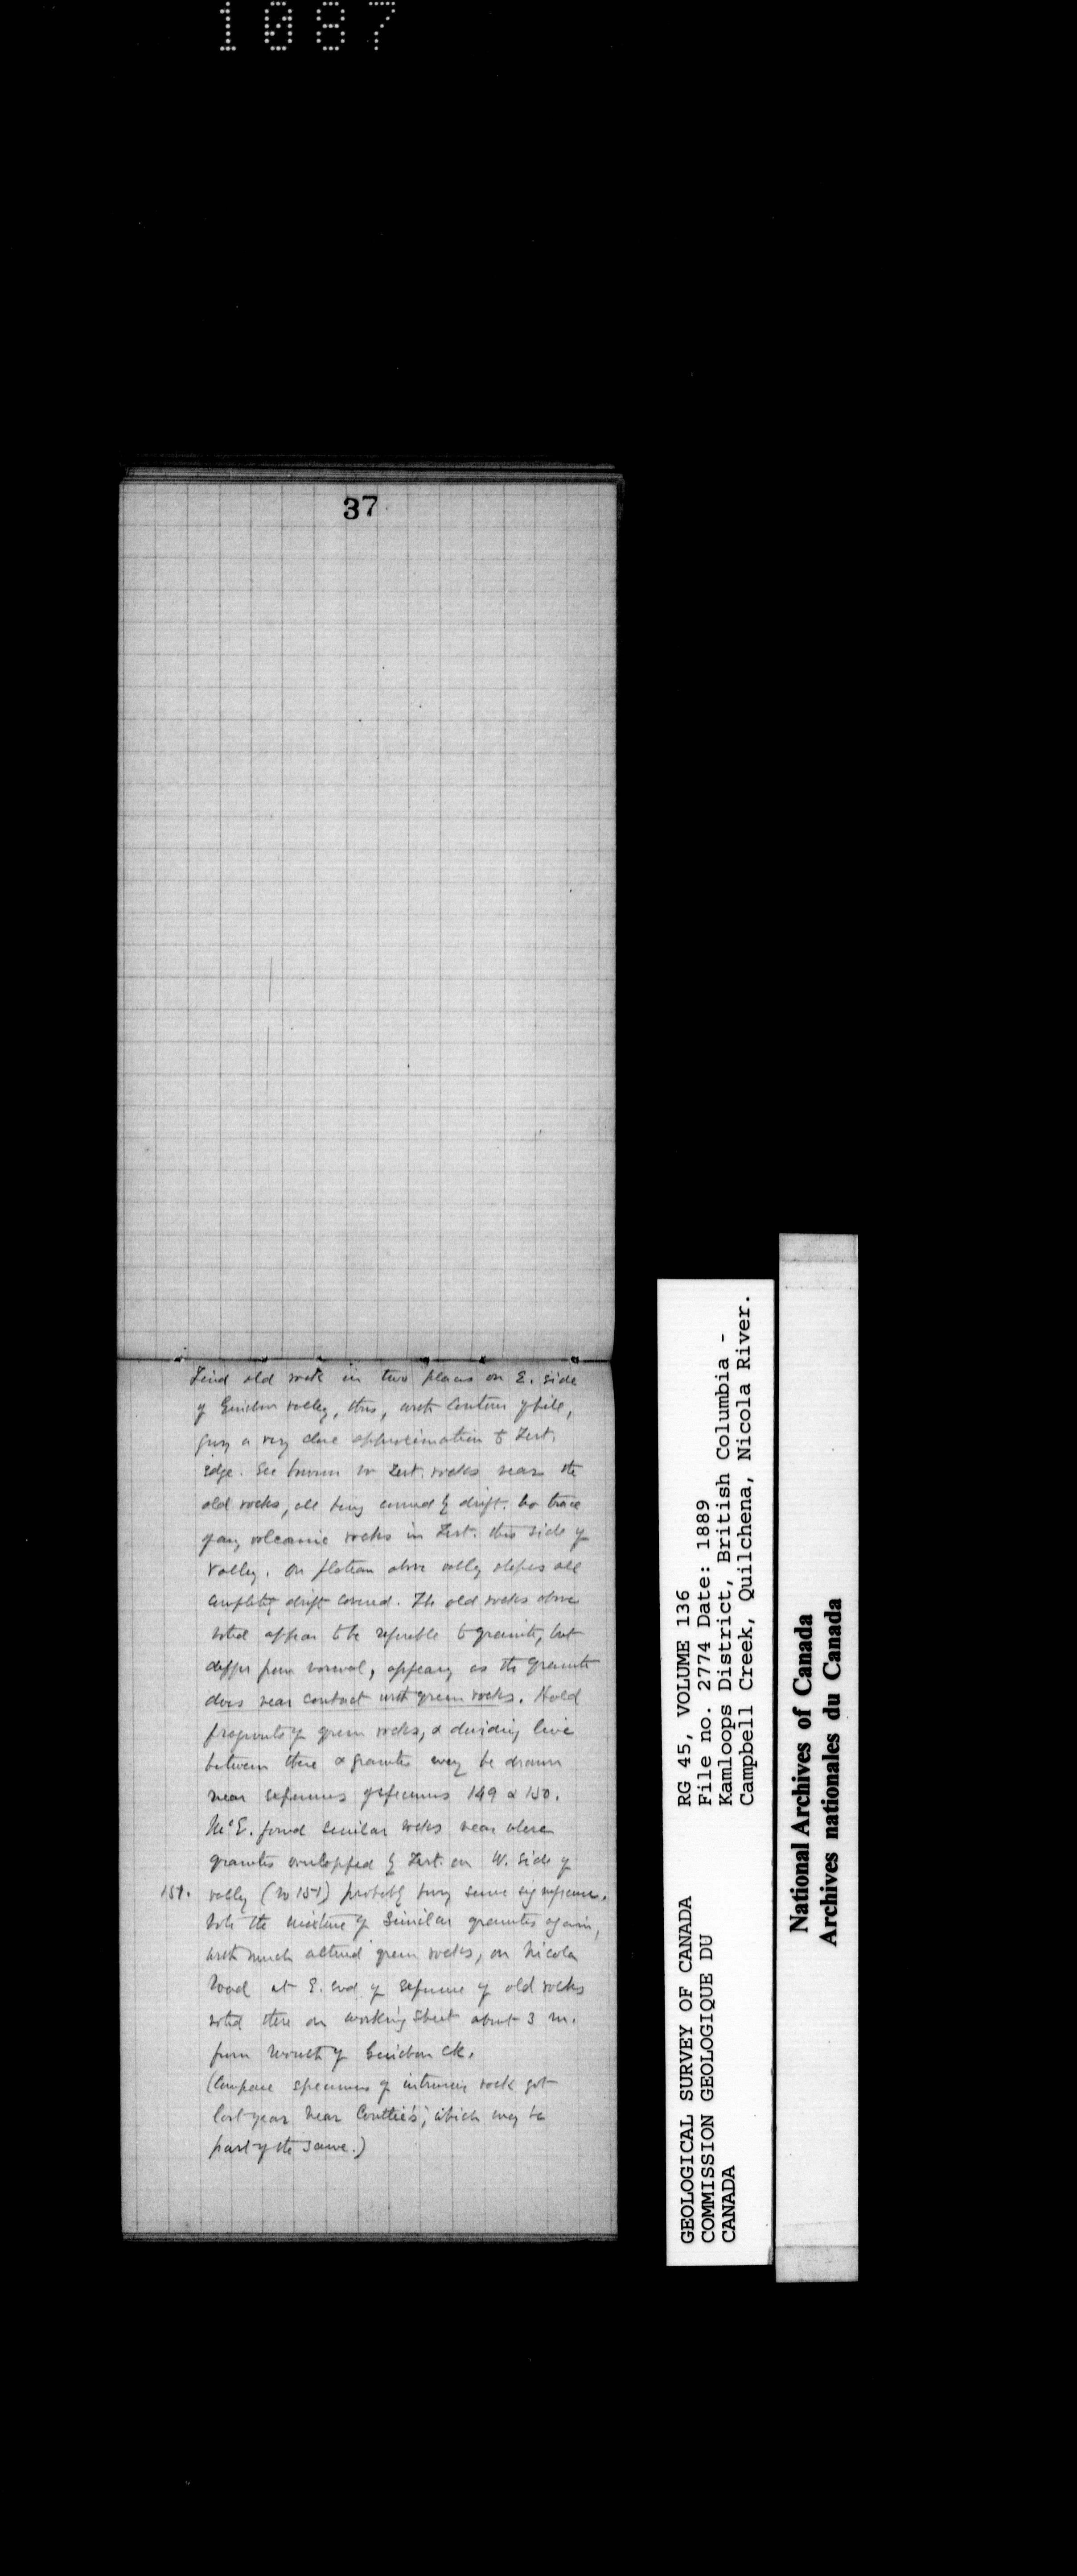 1087
37
Find old rock in two places on E. side
of Guichon valley, thus, with contour of hill,
giving a very close approximation to Tert.
edge. See no Tert. rocks near the
old rocks, all being covered by drift. No trace
of any volcanic rocks in Tert. this side of
valley. On plateau above valley slopes all
completely drift covered. The old rocks above
noted appear to be referable to granite, but
differ from normal, appearing as the granite
does near contact with green rocks. Hold
fragments of green rocks, & dividing line
between these & granites may be drawn
near exposures of specimens 149 & 150.
McE. found similar rocks near where
granites overlapped by Tert. on W. side of
151. valley (No 151) probably having same significance.
Note the mixture of similar granites again,
with much altered green rocks, on Nicola
Road at E. end of exposure of old rocks
noted there on working sheet about 3 m.
from mouth of Guichon Ck.
(Compare specimens of intrusive rock got
last year near Coutlie's, which may be
part of the same.)
GEOLOGICAL SURVEY OF CANADA
COMMISSION GEOLOGIQUE DU
CANADA
RG 45, VOLUME 136
File no. 2774 Date: 1889
Kamloops District, British Columbia -
Campbell Creek, Quilchena, Nicola River.
National Archives of Canada
Archives nationales du Canada